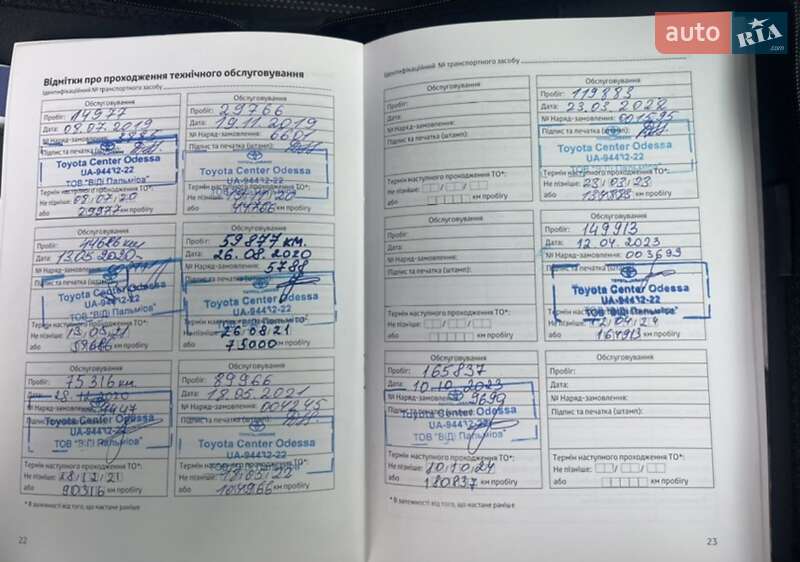 auto RIA.com
Відмітки про проходження технічного обслуговування
Ідентифікаційний № транспортного засобу
Обслуговування
Пробіг: 14977
Дата: 08.07.2019
№ Наряд-замовлення:
Підпис та печатка (штамп):
Toyota Center Odessa
UA-94412-22
ТОВ "ВіДі Пальміра"
Термін наступного проходження ТО*:
Не пізніше: 08/07/20
або 29977 км пробігу
Обслуговування
Пробіг: 29766
Дата: 19.11.2019
№ Наряд-замовлення: 6601
Підпис та печатка (штамп):
Toyota Center Odessa
UA-94412-22
ТОВ "ВіДі Пальміра"
Термін наступного проходження ТО*:
Не пізніше: 20
або 44766 км пробігу
Обслуговування
Пробіг: 44686 км
Дата: 13.05.2020
№ Наряд-замовлення:
Підпис та печатка (штамп):
Toyota Center Odessa
UA-94412-22
ТОВ "ВіДі Пальміра"
Термін наступного проходження ТО*:
Не пізніше: 13/05/21
або 59686 км пробігу
Обслуговування
Пробіг: 59877 км.
Дата: 26.08.2020
№ Наряд-замовлення: 5788
Підпис та печатка (штамп):
Toyota Center Odessa
UA-94412-22
ТОВ "ВіДі Пальміра"
Термін наступного проходження ТО*:
Не пізніше: 26/08/21
або 75000 км пробігу
Обслуговування
Пробіг: 75316 км.
Дата:
№ Наряд-замовлення:
Підпис та печатка (штамп):
Toyota Center Odessa
UA-94412-22
ТОВ "ВіДі Пальміра"
Термін наступного проходження ТО*:
Не пізніше:
або 90316 км пробігу
Обслуговування
Пробіг: 89966
Дата: 18.05.2021
№ Наряд-замовлення: 001245
Підпис та печатка (штамп):
Toyota Center Odessa
UA-94412-22
ТОВ "ВіДі Пальміра"
Термін наступного проходження ТО*:
Не пізніше: 18/05/22
або 104966 км пробігу
* В залежності від того, що настане раніше
22
Ідентифікаційний № транспортного засобу
Обслуговування
Пробіг:
Дата:
№ Наряд-замовлення:
Підпис та печатка (штамп):
Термін наступного проходження ТО*:
Не пізніше:
або км пробігу
Обслуговування
Пробіг: 119883
Дата: 23.03.2022
№ Наряд-замовлення: 001595
Підпис та печатка (штамп):
Toyota Center Odessa
UA-94412-22
ТОВ "ВіДі Пальміра"
Термін наступного проходження ТО*:
Не пізніше: 23/03/23
або км пробігу
Обслуговування
Пробіг:
Дата:
№ Наряд-замовлення:
Підпис та печатка (штамп):
Термін наступного проходження ТО*:
Не пізніше:
або км пробігу
Обслуговування
Пробіг: 149913
Дата: 12.04.2023
№ Наряд-замовлення: 003693
Підпис та печатка (штамп):
Toyota Center Odessa
UA-94412-22
ТОВ "ВіДі Пальміра"
Термін наступного проходження ТО*:
Не пізніше: 12/04/24
або 164913 км пробігу
Обслуговування
Пробіг: 165837
Дата: 10.10.2023
№ Наряд-замовлення: 9699
Підпис та печатка (штамп):
Toyota Center Odessa
UA-94412-22
ТОВ "ВіДі Пальміра"
Термін наступного проходження ТО*:
Не пізніше: 10/10/24
або 180837 км пробігу
Обслуговування
Пробіг:
Дата:
№ Наряд-замовлення:
Підпис та печатка (штамп):
Термін наступного проходження ТО*:
Не пізніше:
або км пробігу
* В залежності від того, що настане раніше
23